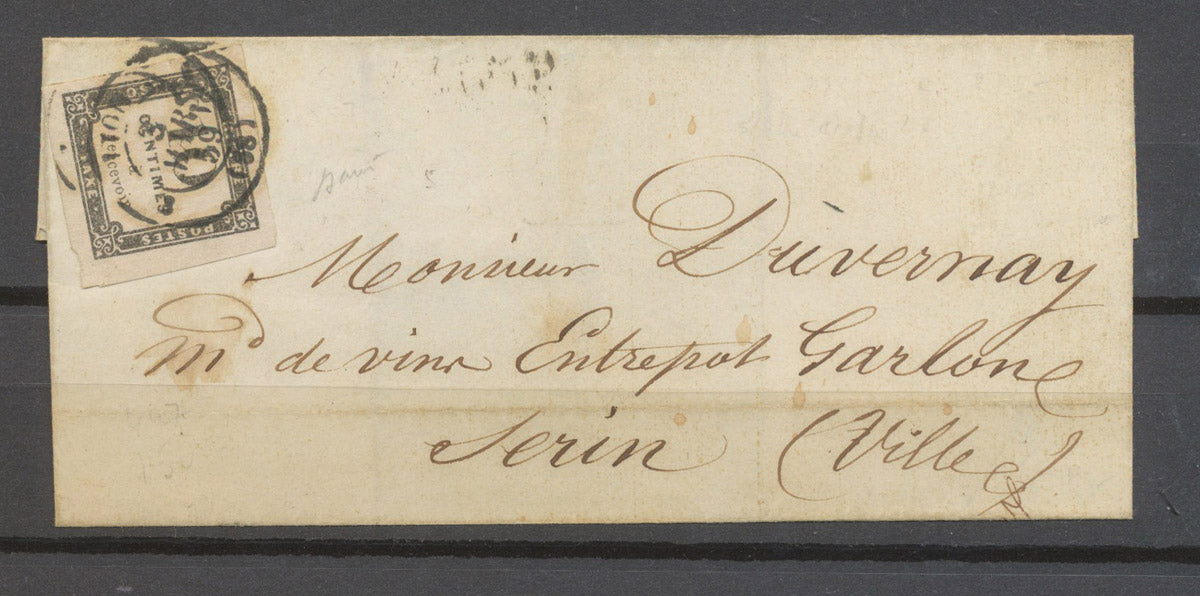 CENTIMES
à percevoir
POSTES
Monsieur Duvernay
Md de vins Entrepot Garlon
Serin (Ville)